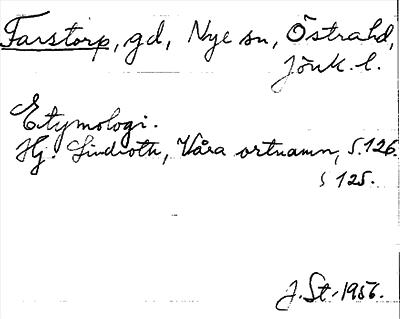 Farstorp, gd, Nye sn, Östra hd,
Jönk. l.
Etymologi.
Hj. Lindroth, Våra ortnamn, S. 126.
S 125.
J. St. 1956.